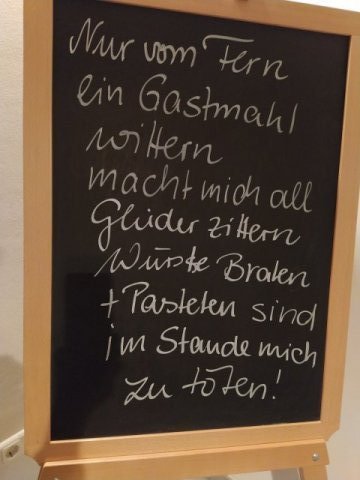 Nur vom Fern
ein Gastmahl
wittern
macht mich all
Glieder zittern
Würste Braten
+ Pasteten sind
im Stande mich
zu töten!